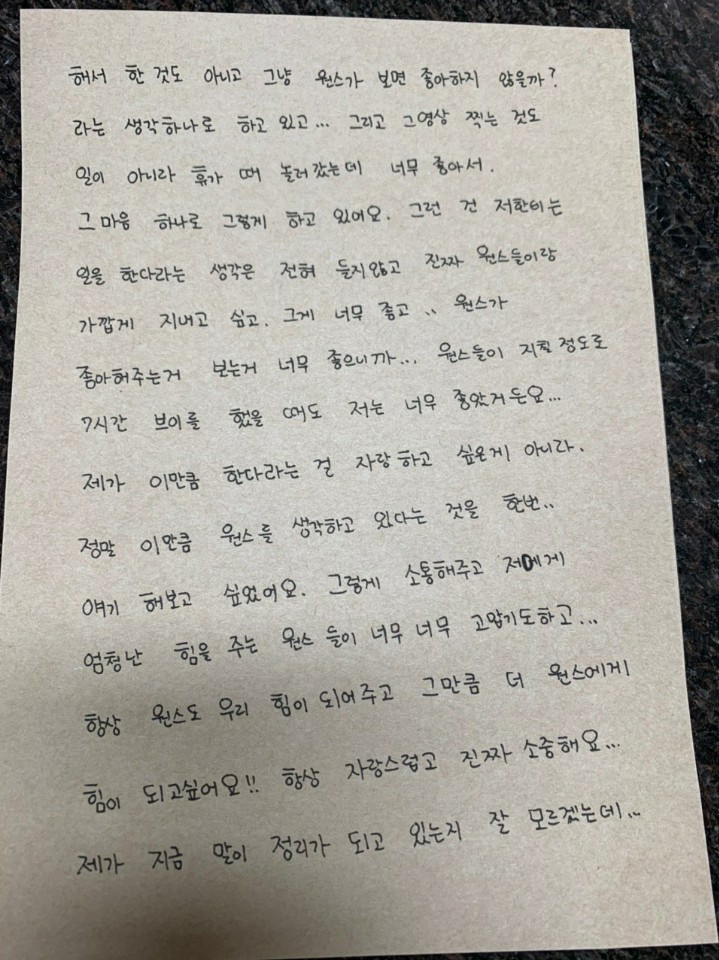 해서 한 것도 아니고 그냥 원스가 보면 좋아하지 않을까?
라는 생각하나로 하고 있고... 그리고 그영상 찍는 것도
일이 아니라 휴가 때 놀러갔는데 너무 좋아서.
그 마음 하나로 그렇게 하고 있어요. 그런 건 저한테는
일을 한다라는 생각은 전혀 들지않고 진짜 원스들이랑
가깝게 지내고 싶고. 그게 너무 좋고.. 원스가
좋아해주는거 보는거 너무 좋으니까... 원스들이 지칠 정도로
7시간 브이를 했을 때도 저는 너무 좋았거든요...
제가 이만큼 한다라는 걸 자랑하고 싶은게 아니라.
정말 이만큼 원스를 생각하고 있다는 것을 한번..
얘기 해보고 싶었어요. 그렇게 소통해주고 저에게
엄청난 힘을 주는 원스 들이 너무 너무 고맙기도하고...
항상 원스도 우리 힘이 되어주고 그만큼 더 원스에게
힘이 되고싶어요!! 항상 자랑스럽고 진짜 소중해요...
제가 지금 말이 정리가 되고 있는지 잘 모르겠는데...